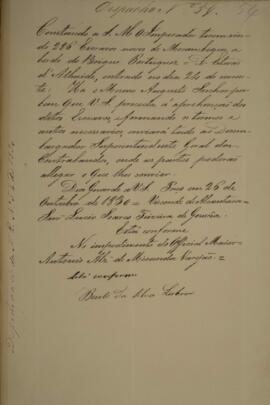 Despacho Nº 59. 54
Constando a S. M. O Imperador terem vin-
do 228 Escravos novos de Mocambique, a
bordo do Bergue Portuguez D. Estevão
d'Athaide, entrado no dia 24 do mez-
te: Ha o Mesmo Augusto Senhor por
bem Que V. S. proceda á aprehenção dos
ditos Escravos, e formando o termo e
autos necessarios, enviará tudo ao Dezem-
bargador Superintendente Geral dos
Contrabandos, onde as partes poderão
allegar o que lhes convier.
Deos Guarde a V. S. Paço em 26 de
Outubro de 1830 = Visconde de Alcantara =
Snr. Lucio Soares Teixeira de Gouvêa.
Está conforme
No impedimento do Official Maior
Antonio Alz. de Miranda Varejão =
Está conforme
Bento da Silva Lisboa